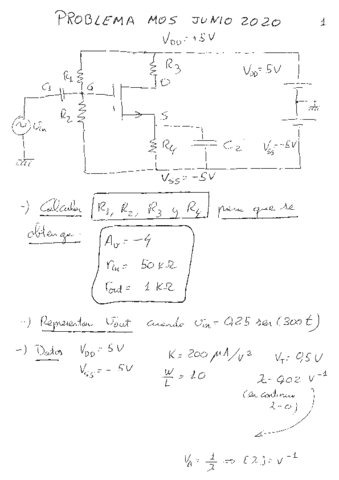 PROBLEMA MOS JUNIO 2020 1
VDD = +5V
R1 R3
VDD = 5V
C1 G D
R2
Vin S
R4 C2 VSS = -5V
VSS = -5V
-) Calcular R1, R2, R3 y R4 para que se
obtenga:
Av = -4
rin = 50 KΩ
rout = 1 KΩ
-) Representar Vout cuando vin = 0,25 sen (300t)
-) Datos VDD = 5V K = 200 μA/V² VT = 0,5V
VSS = -5V W/L = 10 λ = 0,02 V⁻¹
(en continua
λ = 0)
VA = 1/λ ⇒ [λ] = V⁻¹